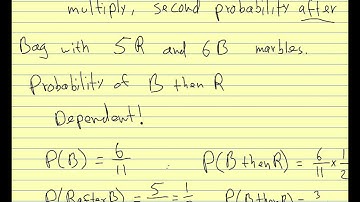 multiply, second probability after
Bag with 5R and 6B marbles.
Probability of B then R
Dependent!
P(B) = 6/11 P(B then R) = 6/11 × 1/2
P(R after B) = 5 P(B then R) = 3